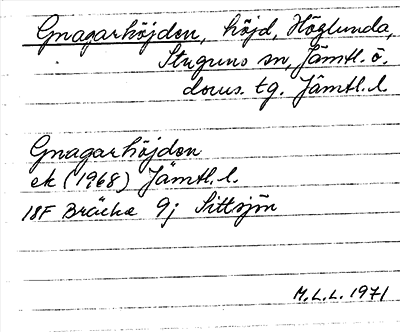 Gnagarhöjden, höjd, Höglunda,
Stuguns sn, Jämtl. ö.
doms. tg. Jämtl. l.
Gnagarhöjden
ek (1968) Jämtl. l.
18F Bräcke 9j Sittsjön
M.L.L. 1971